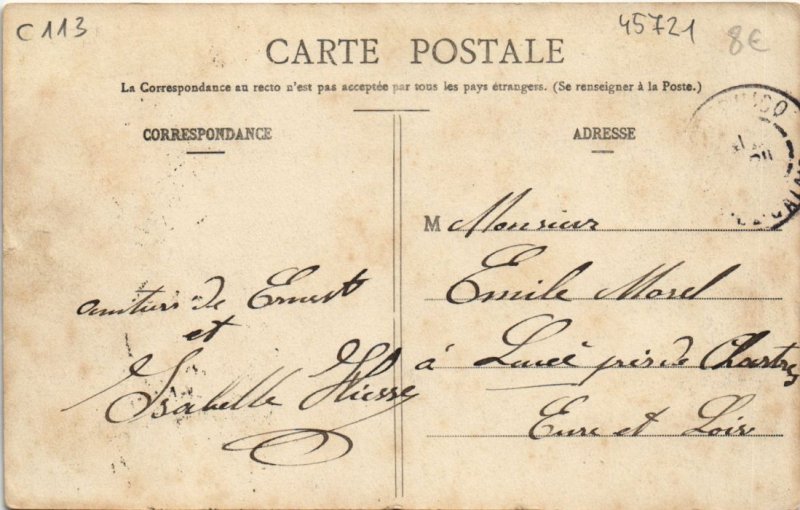 C113
45721
8€
CARTE POSTALE
La Correspondance au recto n'est pas acceptée par tous les pays étrangers. (Se renseigner à la Poste.)
CORRESPONDANCE
ADRESSE
amitiés de Ernest
et
Isabelle
M Monsieur
Emile Morel
à Lucé près de Chartres
Eure et Loir